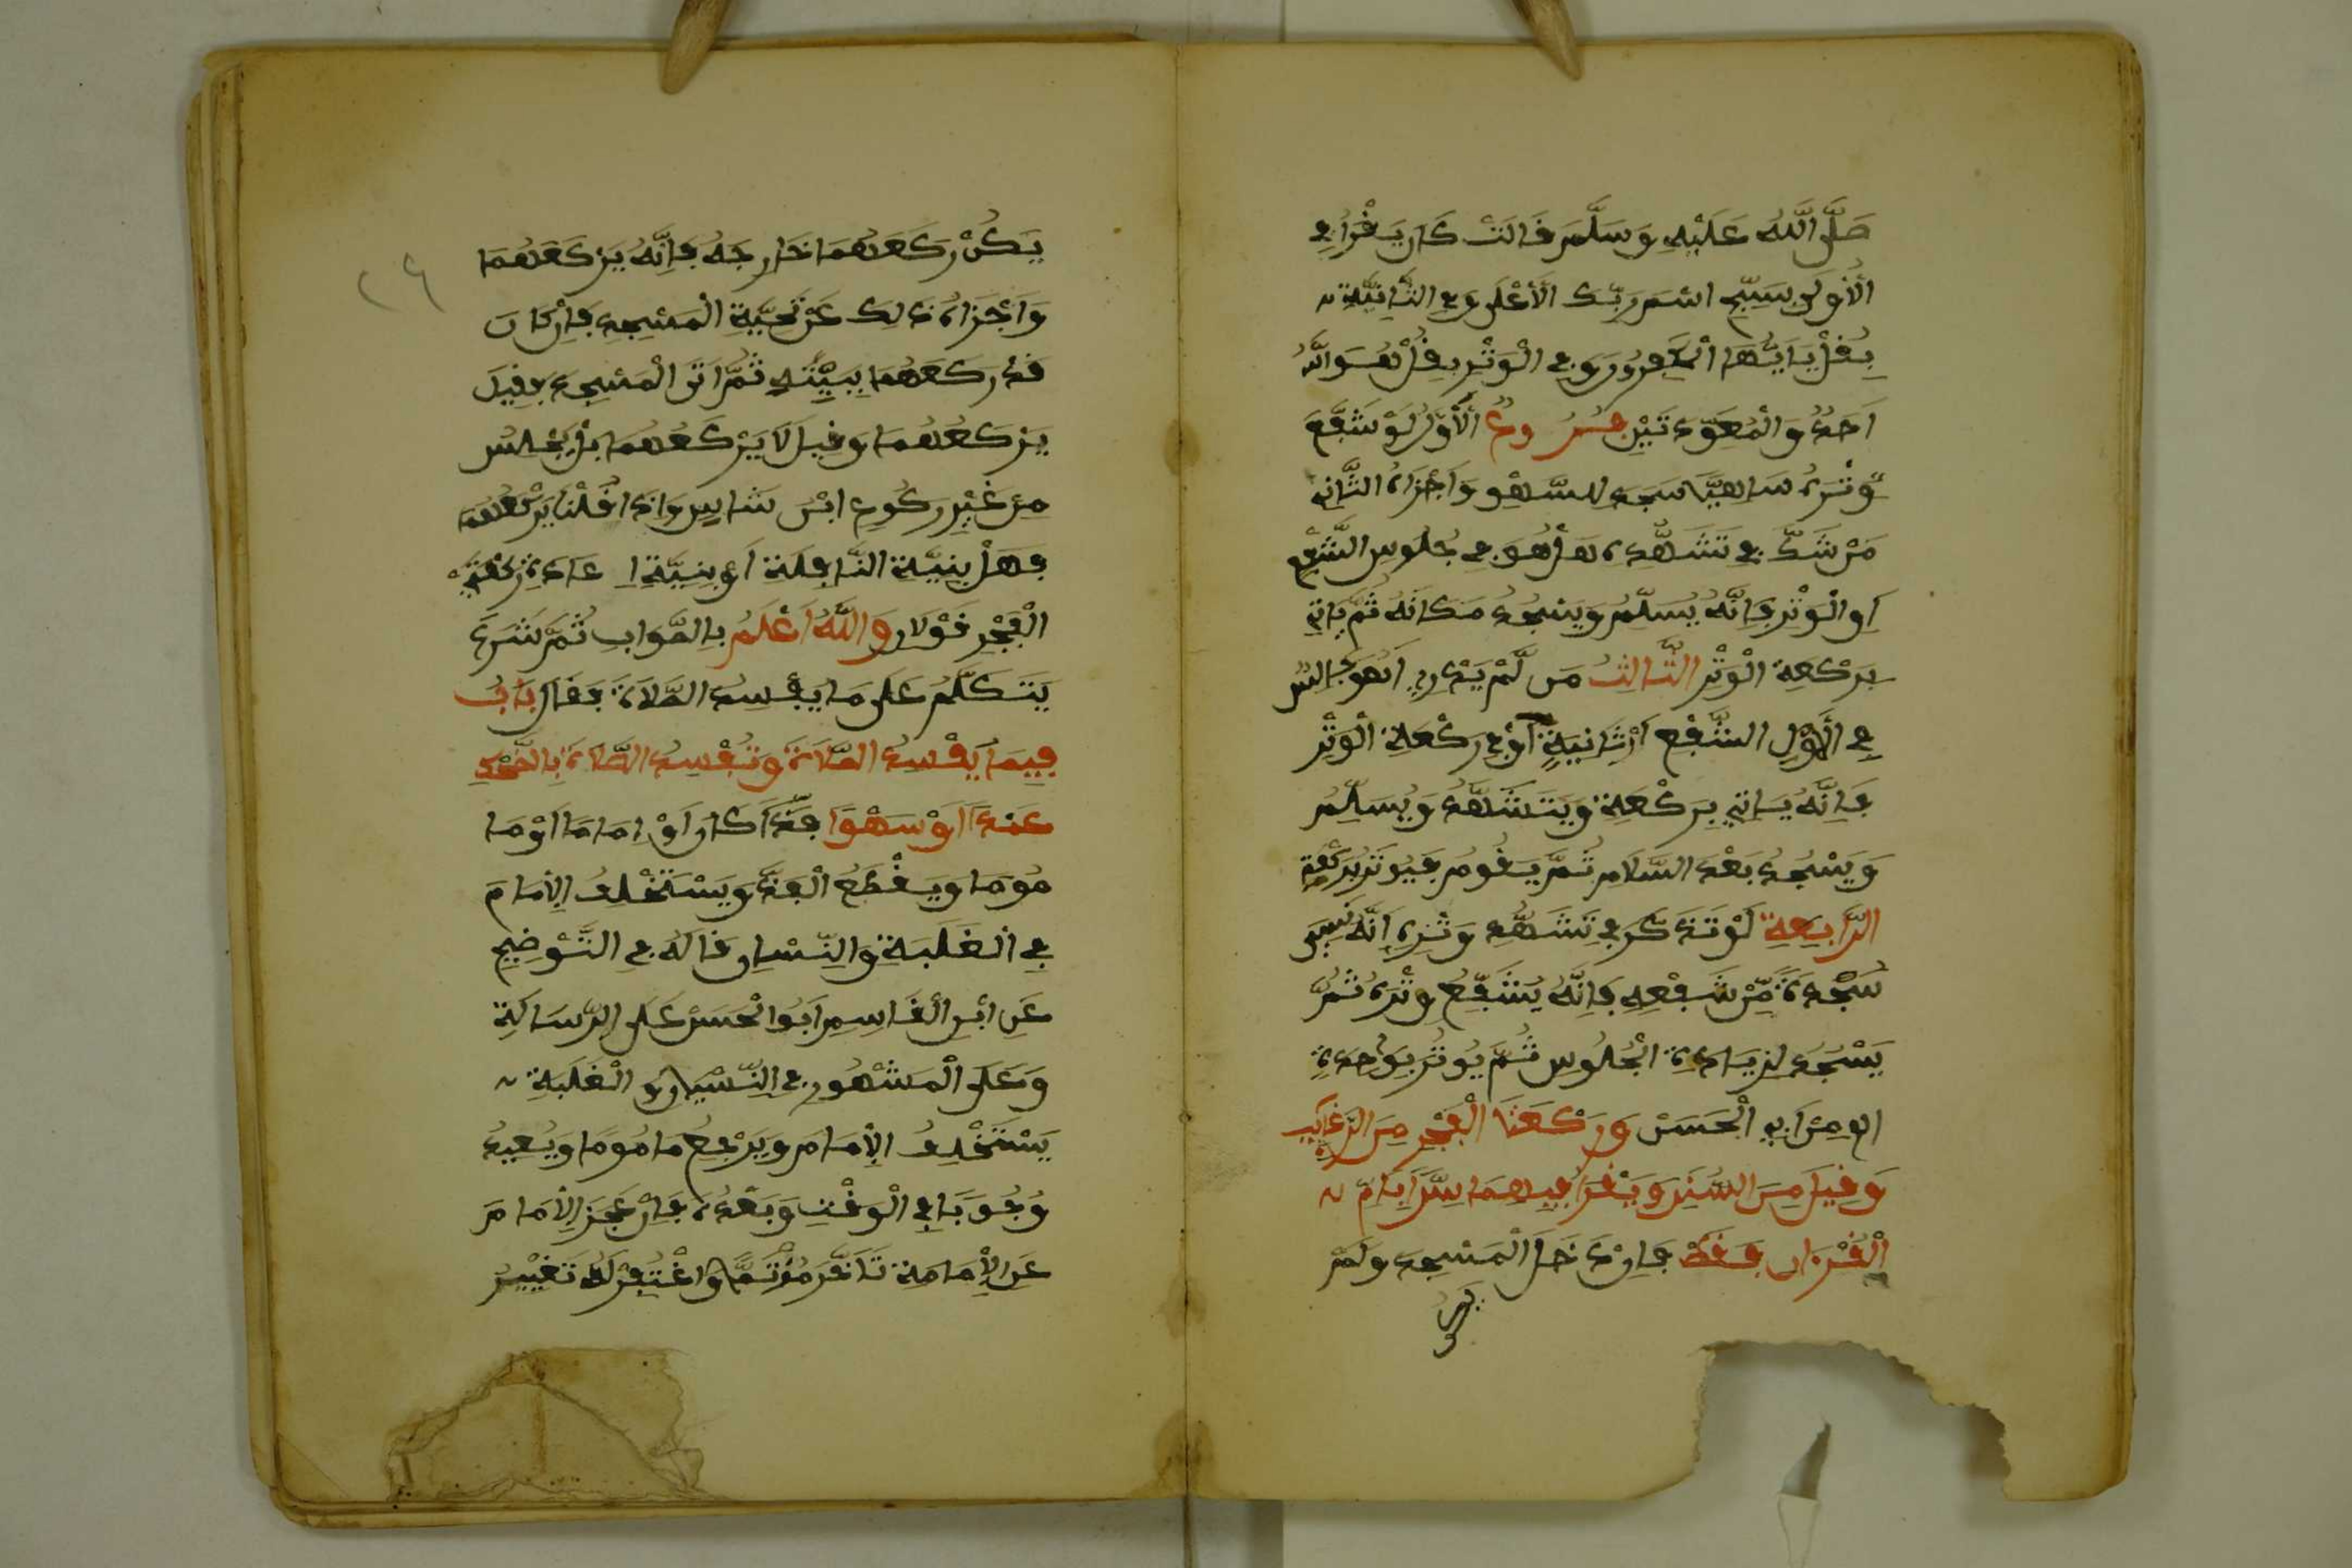 صَلَّى اللَّهُ عَلَيْهِ وَسَلَّمَ قَالَتْ كَانَ يَقْرَأُ فِي
الْأُولَى سَبِّحِ اسْمَ رَبِّكَ الْأَعْلَى وَفِي الثَّانِيَّةِ
بِقُلْ يَا أَيُّهَا الْكَافِرُونَ وَفِي الْوَتْرِ بِقُلْ هُوَ اللَّهُ
أَحَدٌ وَالْمُعَوِّذَتَيْنِ فُرُوعٌ الْأَوَّلُ لَوْ شَفَّعَ
وَتْرَهُ سَاهِيًّا سَجَدَ لِلسَّهْوِ وَأَجْزَأَهُ الثَّانِي
مَنْ شَكَّ فِي تَشَهُّدِهِ هَلْ هُوَ فِي جُلُوسِ الشَّفْعِ
أَوِ الْوَتْرِ فَإِنَّهُ يُسَلِّمُ وَيَسْجُدُ مَكَانَهُ ثُمَّ يَأْتِي
بِرَكْعَةِ الْوَتْرِ الثَّالِثُ مَن لَّمْ يَدْرِ أَهُوَ جَالِسٌ
فِي الْأَوَّلِ الشَّفْعِ أَوْ ثَانِيَةٍ أَوْ فِي رَكْعَةِ الْوَتْرِ
فَإِنَّهُ يَأْتِي بِرَكْعَةٍ وَيَتَشَهَّدُ وَيُسَلِّمُ
وَيَسْجُدُ بَعْدَ السَّلَامِ ثُمَّ يَقُومُ فَيُوتِرُ بِرَكْعَةٍ
الرَّابِعَةِ لَوْ تَذَكَّرَ فِي تَشَهُّدِ وَتْرِهِ أَنَّهُ نَسِيَ
سَجْدَةً مِّنْ شَفْعِهِ فَإِنَّهُ يُشَفِّعُ وَتْرَهُ ثُمَّ
يَسْجُدُ لِزِيَادَةِ الْجُلُوسِ ثُمَّ يُوتُرُ بِوَاحِدَةٍ
اه مِنْ أَبِي الْحَسَنْ وَرَكْعَتَا الْفَجْرِ مِنَ الرَّغَائِبِ
وَقِيلَ مِنَ السُّنَنِ وَيَقْرَأُ فِيهِمَا سِرًّا بِأُمِّ
الْقُرْءَانِ فَقَطْ فَإِنْ دَخَلَ الْمَسْجِدَ وَلَمْ
يكن
يَكُنْ رَكَعَهُمَا خَارِجَهُ فَإِنَّهُ يَرْكَعُهُمَا
وَأَجْزَأَهُ ذَلِكَ عَنْ تَحِيَّةِ الْمَسْجِدِ فَإِنْ كَانَ
قَدْ رَكَعَهُمَا بِبَيْتِهِ ثُمَّ أَتَى الْمَسْجِدَ فَقِيلَ
يَرْكَعُهُمَا وَقِيلَ لَا يَرْكَعُهُمَا بَلْ يَجْلِسُ
مِنْ غَيْرِ رُكُوعٍ ابْنُ شَاسٍ وَإِذَا قُلْنَا يَرْكَعُهُمَا
فَهَلْ بِنِيَّةِ النَّافِلَةِ أَوْ بِنِيَّةِ إِعَادَةِ رَكْعَتَيِ
الْفَجْرِ قَوْلَانِ وَاللَّهُ أَعْلَمُ بِالصَّوَابِ ثُمَّ شَرَعَ
يَتَكَلَّمُ عَلَى مَا يُفْسِدُ الصَّلَاةَ فَقَالَ بَابٌ
فِيمَا يُفْسِدُ الصَّلَاةَ وَتَفْسِدُ الصَّلَاةُ بِالضَّحِكِ
عَمْدًا أَوْ سَهْوًا فَذًّا كَانَ أَوْ إِمَامًا أَوْ مَا
مُومًا وَيَقْطَعُ الْفَذُّ وَيَسْتَخْلِفُ الْإِمَامَ
فِي الْغَلَبَةِ وَالنِّسْيَانِ قَالَهُ فِي التَّوْضِيحِ
عَنِ ابْنِ الْقَاسِمِ أَبُو الْحَسَنْ عَلَى الرِّسَالَةِ
وَعَلَى الْمَشْهُورِ فِي النِّسْيَانِ وَالْغَلَبَةِ
يَسْتَخْلِفُ الْإِمَامَ وَيَرْجِعُ مَامُومًا وَيُعِيدُ
وُجُوبًا فِي الْوَقْتِ وَبَعْدَهُ فَإِنْ عَجَزَ الْإِمَامَ
عَنِ الْإِمَامَةِ تَأَخَّرَ مُؤْتَمًّا وَاغْتُفِرَ لَهُ تَغْيِيرُ